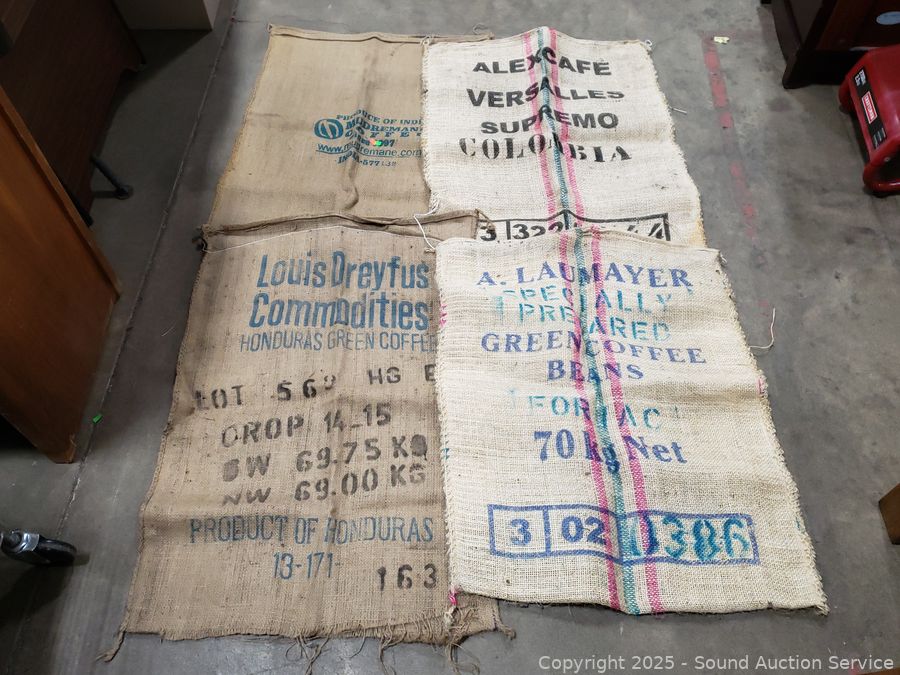 PRODUCE OF INDIA
COFFEE
INDIA-577138
ALEXCAFÉ
VERSALLES
SUPREMO
COLOMBIA
3 322
Louis Dreyfus
Commodities
HONDURAS GREEN COFFEE
LOT 569 HG E
CROP 14-15
GW 69.75 KG
NW 69.00 KG
PRODUCT OF HONDURAS
13-171-
163
A. LAUMAYER
SPECIALLY
PREPARED
GREEN COFFEE
BEANS
70 kg Net
3 02 0386
Copyright 2025 - Sound Auction Service